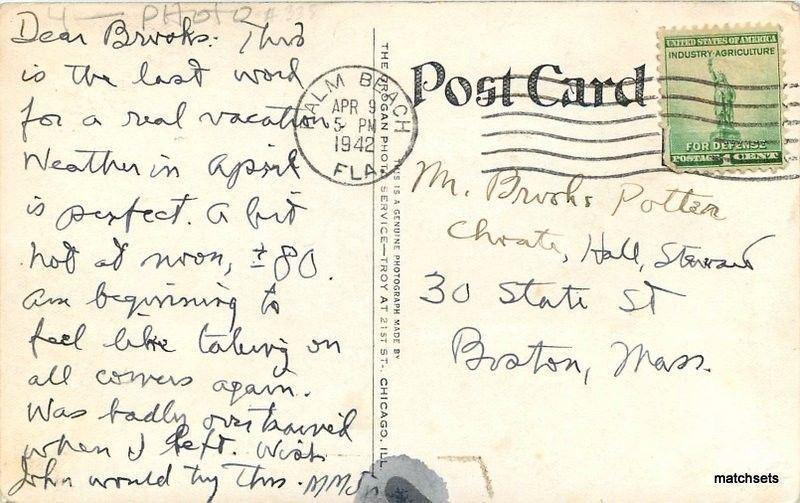 4 — PHOTO
Dear Brooks: This
is the last word
for a real vacation
Weather in April
is perfect. A bit
hot at noon, ± 80.
Am beginning to
feel like taking on
all comers again.
Was badly overtrained
when I left. Wish
John would try this.
THE GROGAN PHOTO SERVICE—TROY AT 21ST ST., CHICAGO, ILL.
THIS IS A GENUINE PHOTOGRAPH MADE BY
PALM BEACH
APR 9
5 PM
1942
FLA.
Post Card
UNITED STATES OF AMERICA
INDUSTRY·AGRICULTURE
FOR DEFENSE
POSTAGE 1 CENT
Mr. Brooks Potter
Choate, Hall, Stewart
30 State St
Boston, Mass.
matchsets